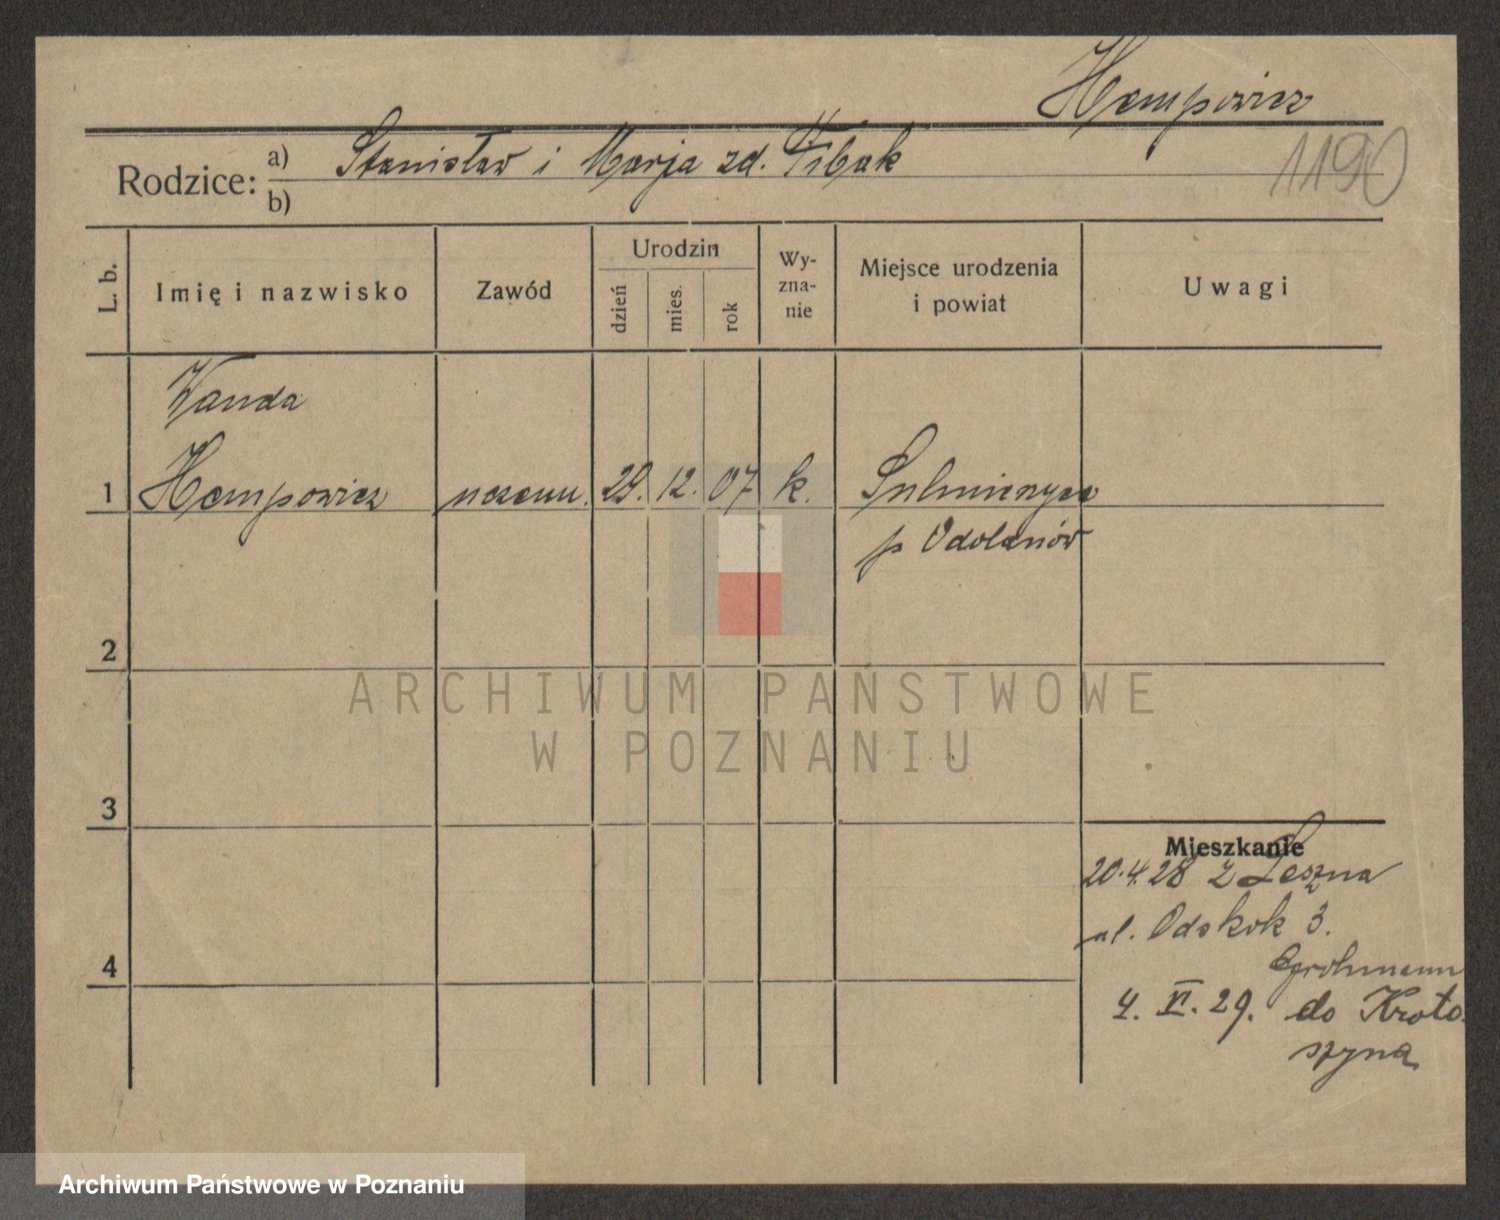 Hempowicz
1190
Rodzice: a) Stanisław i Marja zd.
b)
L. b.
Imię i nazwisko
Zawód
Urodzin
dzień
mies.
rok
Wy-
zna-
nie
Miejsce urodzenia
i powiat
Uwagi
Wanda
1 Hempowicz uczenn. 29. 12. 07 k. Sulmierzyce
p Odolanów
2
ARCHIWUM PAŃSTWOWE
W POZNANIU
3
Mieszkanie
20.4.28 z Leszna
ul. Odskok 3.
4
4. XI. 29. do Kroto
szyna
Archiwum Państwowe w Poznaniu